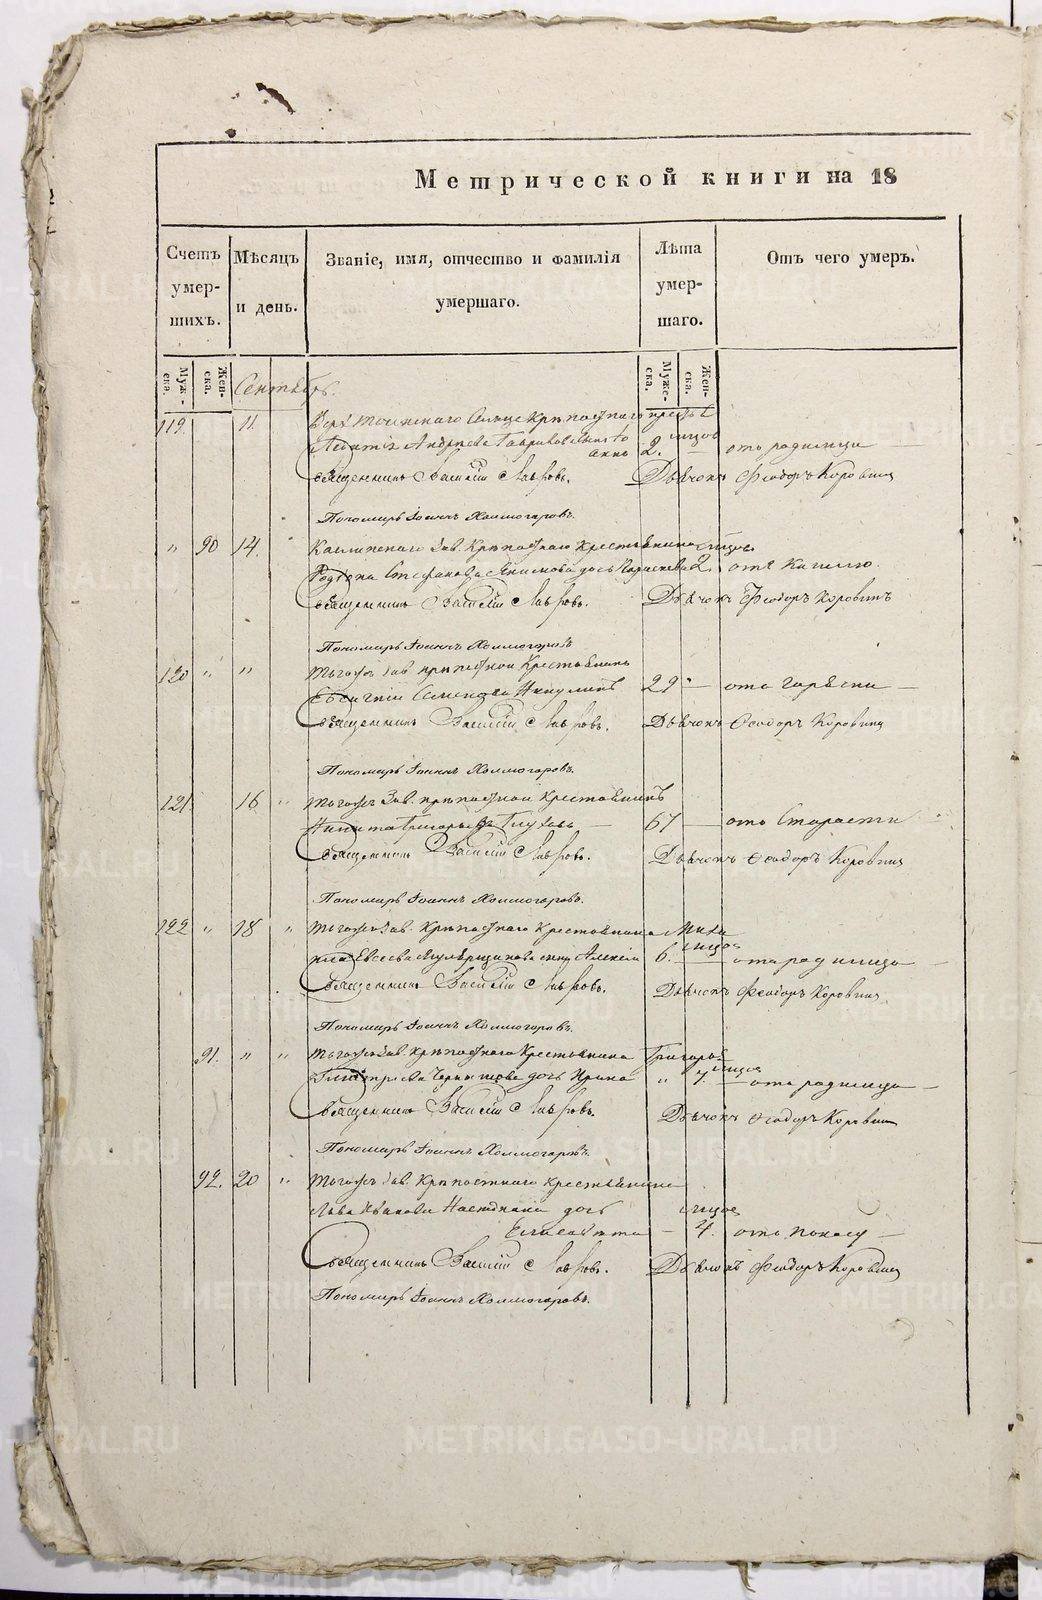 Метрической книги на 18
Счетъ умер- шихъ.
Мѣсяцъ и день.
Званіе, имя, отчество и фамилія умершаго.
Лѣта умер- шаго.
Отъ чего умеръ.
Муже- ска.
Жен- ска.
Муже- ска.
Жен- ска.
Сентябрь
119. 11
Андреева 2. отъ родимца
Священникъ Василій Лавровъ. Дьячокъ Феодоръ Коровинъ
Пономарь Іоаннъ Холмогоровъ.
" 90 14. Каслинскаго Зав. Крѣпостнаго Крестьянина мцов
Родіона Стефанова Якимова дочь 2 отъ Кашлю.
Священникъ Василій Лавровъ. Дьячокъ Феодоръ Коровинъ
Пономарь Іоаннъ Холмогоровъ
120 " " Тогожъ Зав крѣпостной Крестьянинъ
Семеновъ Никулинъ 29 — отъ горячки —
Священникъ Василій Лавровъ. Дьячокъ Феодоръ Коровинъ
Пономарь Іоаннъ Холмогоровъ.
121 16 " Тогожъ Зав. крѣпостной крестьянинъ
Никита Григорьевъ Глуховъ — 67 — отъ Старости
Священникъ Василій Лавровъ. Дьячокъ Феодоръ Коровинъ
Пономарь Іоаннъ Холмогоровъ.
122 " 18 " Тогожъ Зав. Крѣпостнаго Крестьянина Миха
ила Евсеева сынъ Алексѣй 6. мцов — отъ родимца —
Священникъ Василій Лавровъ. Дьячокъ Феодоръ Коровинъ
Пономарь Іоаннъ Холмогоровъ.
91. " " Тогожъ Зав. Крѣпостнаго Крестьянина Григорья
дочь Ирина " 7. мцов — отъ родимца —
Священникъ Василій Лавровъ. Дьячокъ Феодоръ Коровинъ
Пономарь Іоаннъ Холмогоровъ.
92. 20 " Тогожъ Зав. Крѣпостнаго крестьянина
Льва Иванова дочь мцов
Елисавета — 4. отъ поносу —
Священникъ Василій Лавровъ. Дьячокъ Феодоръ Коровинъ
Пономарь Іоаннъ Холмогоровъ.
METRIKI.GASO-URAL.RU